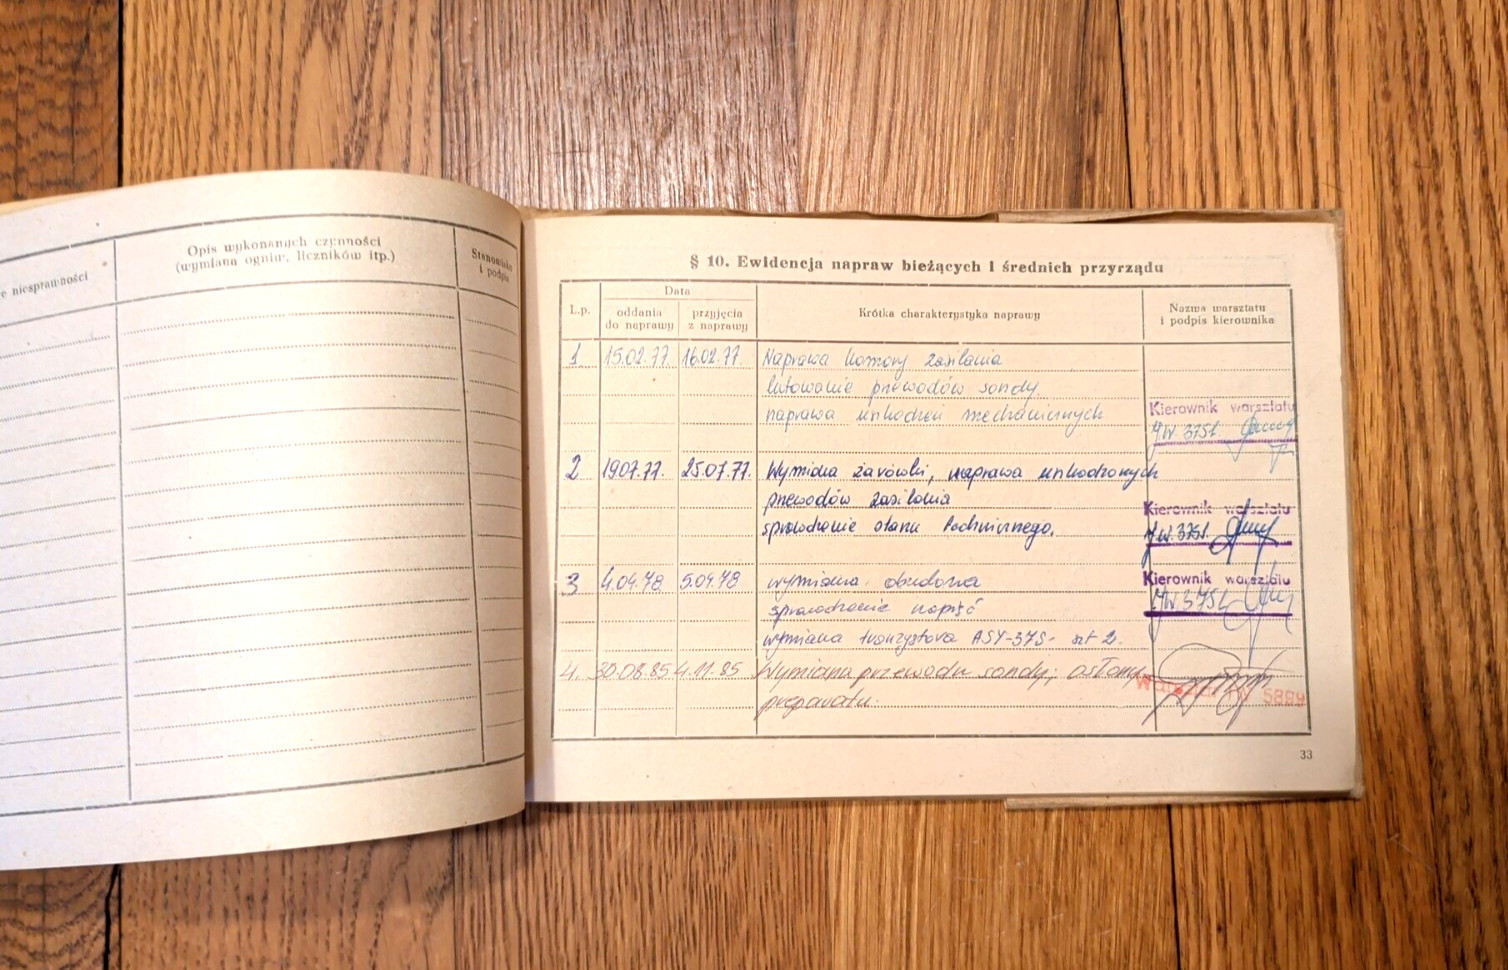 e niesprawności
Opis wykonanych czynności
(wymiana ogniw, liczników itp.)
Stanowisko
i podpis
§ 10. Ewidencja napraw bieżących i średnich przyrządu
L.p.
Data
oddania
do naprawy
przyjęcia
z naprawy
Krótka charakterystyka naprawy
Nazwa warsztatu
i podpis kierownika
1 15.02.77. 16.02.77. Naprawa komory zasilania
lutowanie przewodów sondy.
naprawa uszkodzeń mechanicznych
Kierownik warsztatu
JW 3751
2 19.07.77. 25.07.77. Wymiana żarówki, naprawa uszkodzonych
przewodów zasilania
sprawdzenie stanu technicznego.
Kierownik warsztatu
JW 3751
3 4.04.78 5.04.78 wymiana obudowa
sprawdzenie napięć
wymiana tranzystora ASY-37S- szt 2.
Kierownik warsztatu
JW 3751
4. 30.08.85 4.11.85 Wymiana przewodu sondy; osłony
preparatu.
5889
33